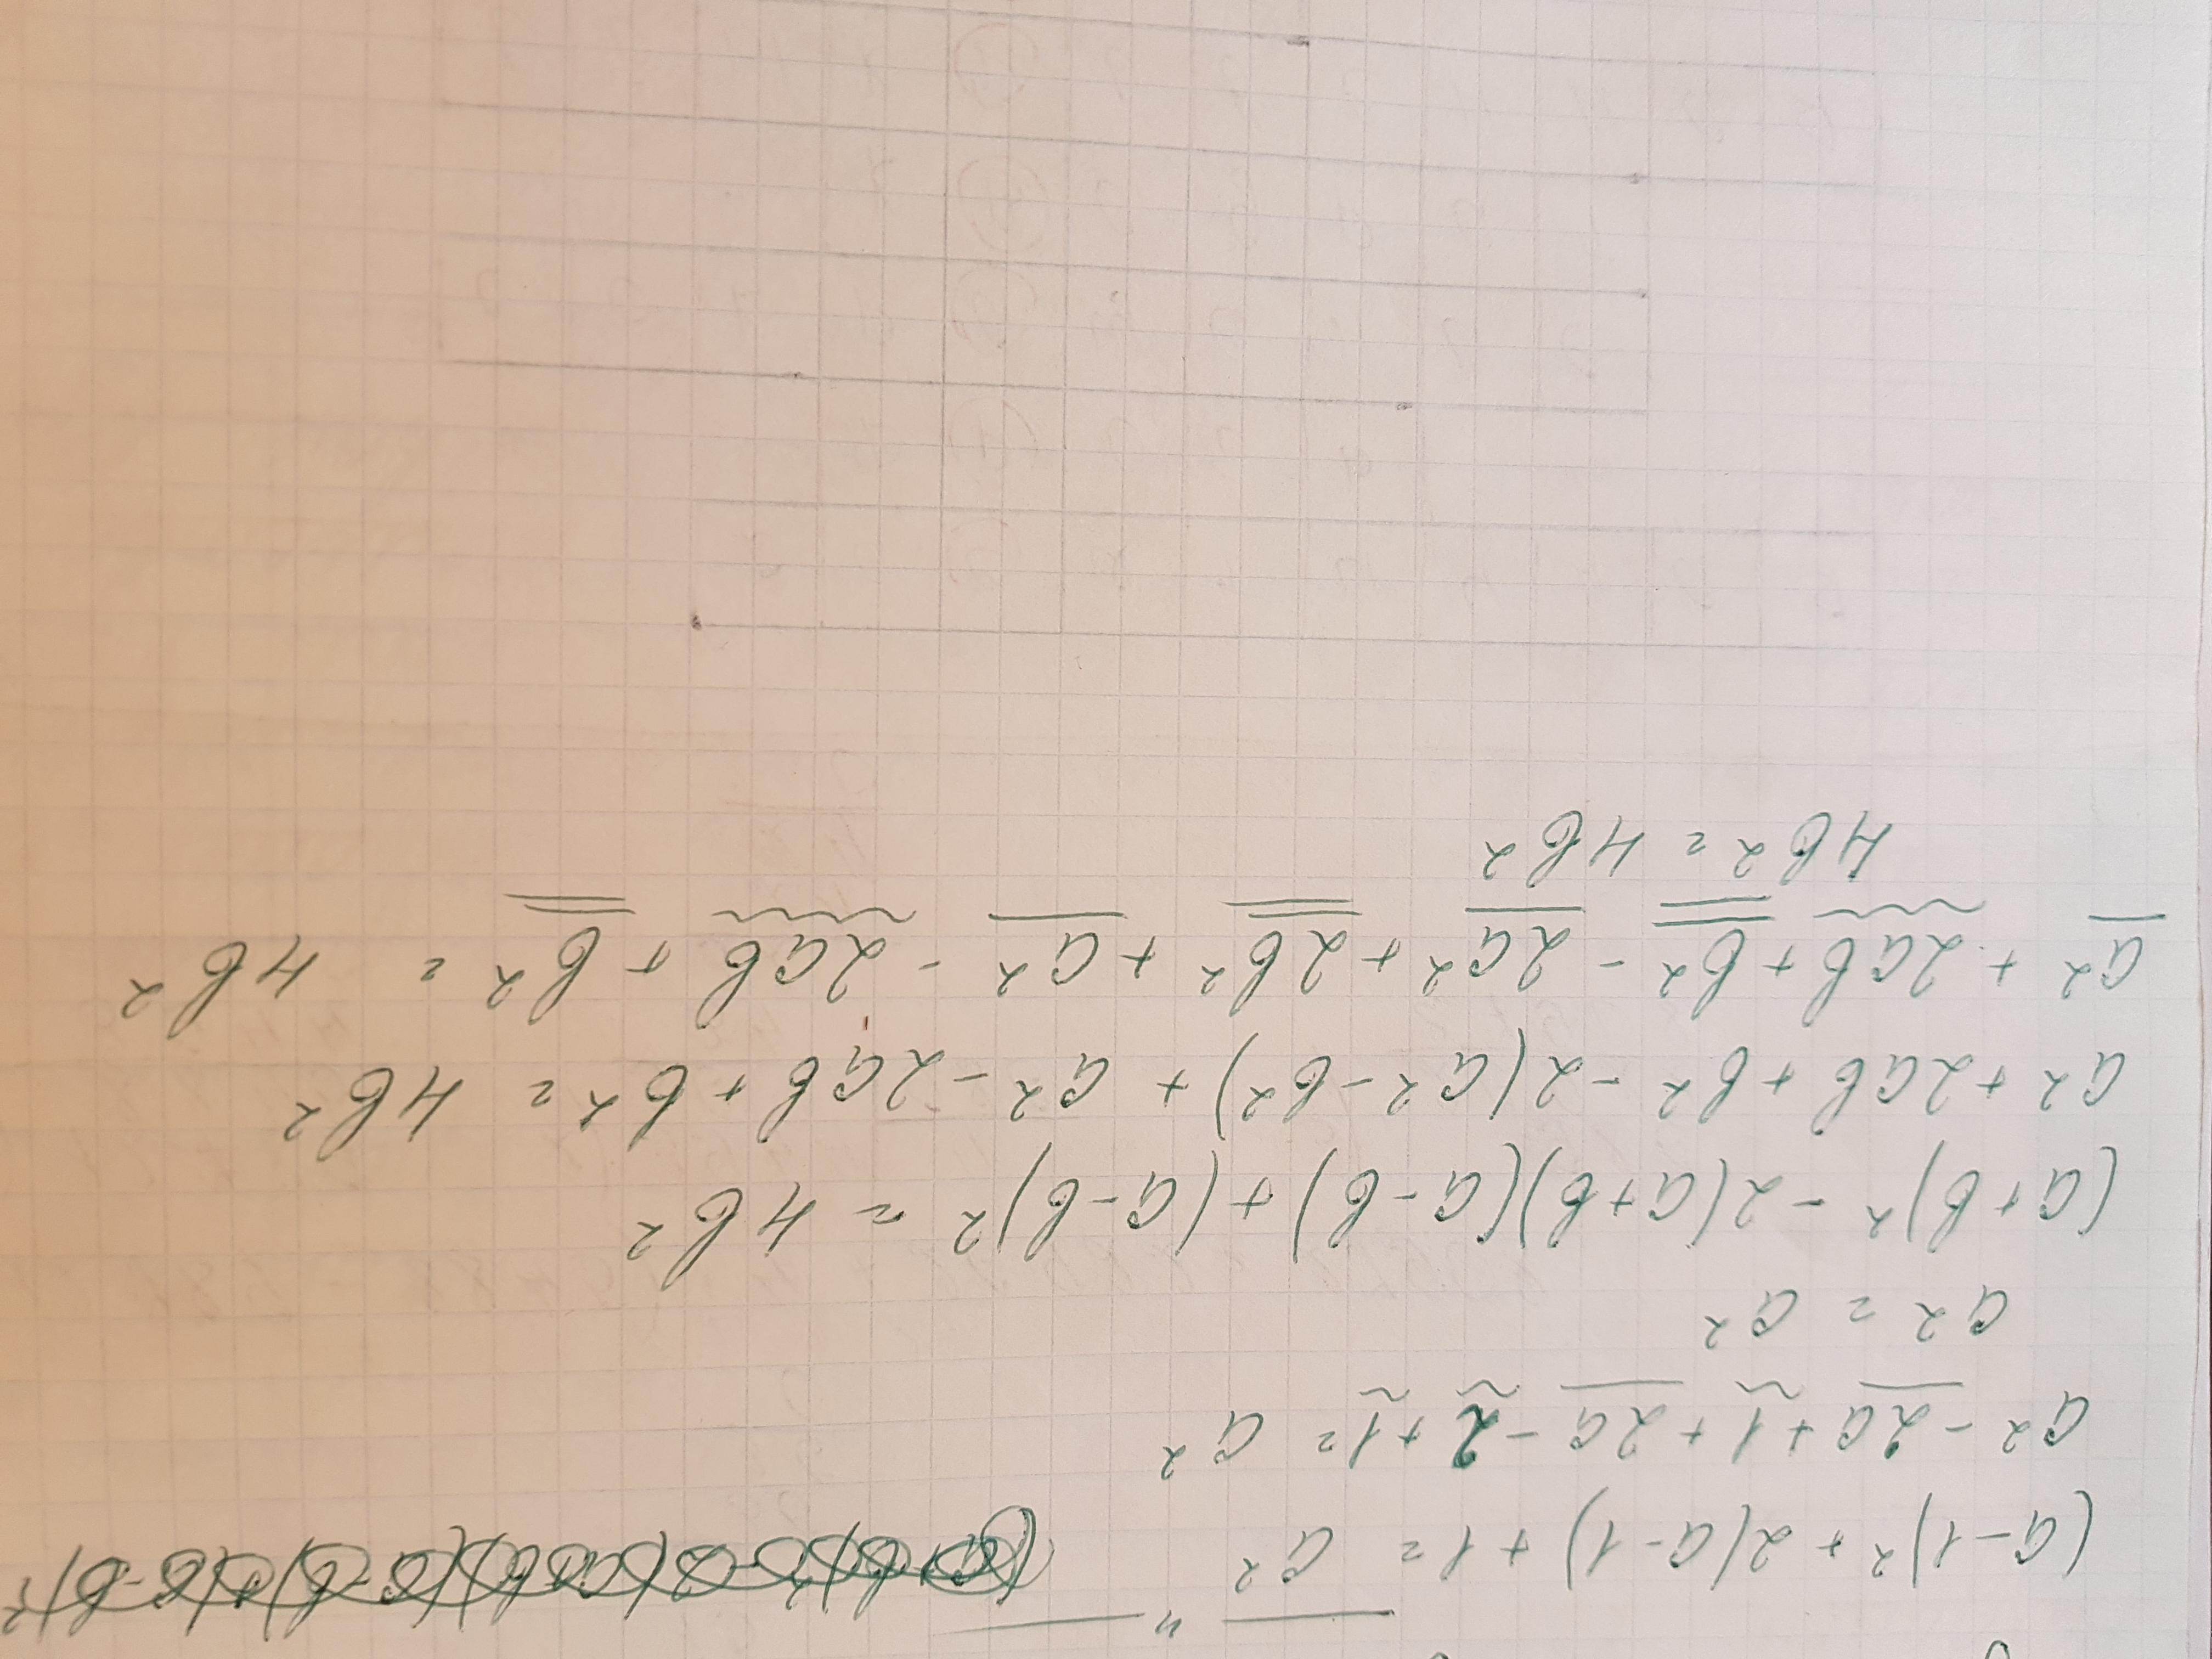 — " —
(a-1)² + 2(a-1) + 1 = a²
a² - 2a + 1 + 2a - 2 + 1 = a²
a² = a²
(a+b)² - 2(a+b)(a-b) + (a-b)² = 4b²
a² + 2ab + b² - 2(a² - b²) + a² - 2ab + b² = 4b²
a² + 2ab + b² - 2a² + 2b² + a² - 2ab + b² = 4b²
4b² = 4b²